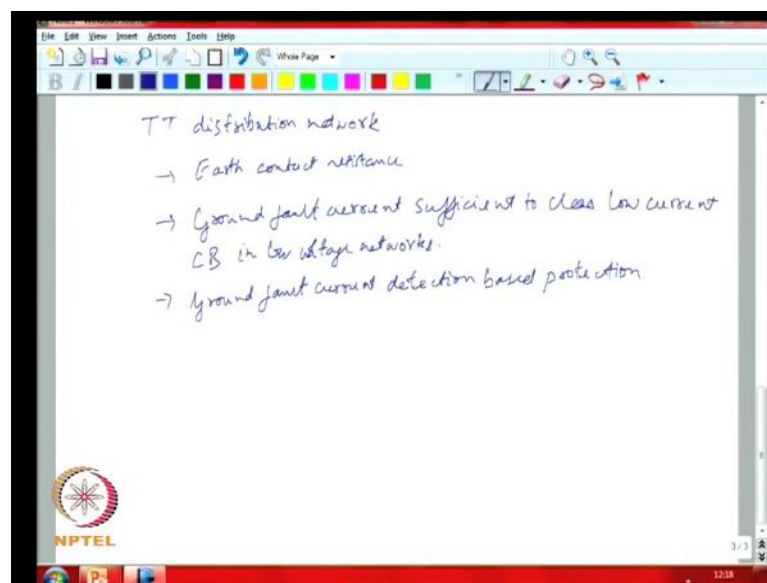 File Edit View Insert Actions Tools Help
Whole Page
B I
TT distribution network
→ Earth contact resistance
→ Ground fault current sufficient to clear low current
CB in low voltage networks.
→ Ground fault current detection based protection
NPTEL
3/3
12:18